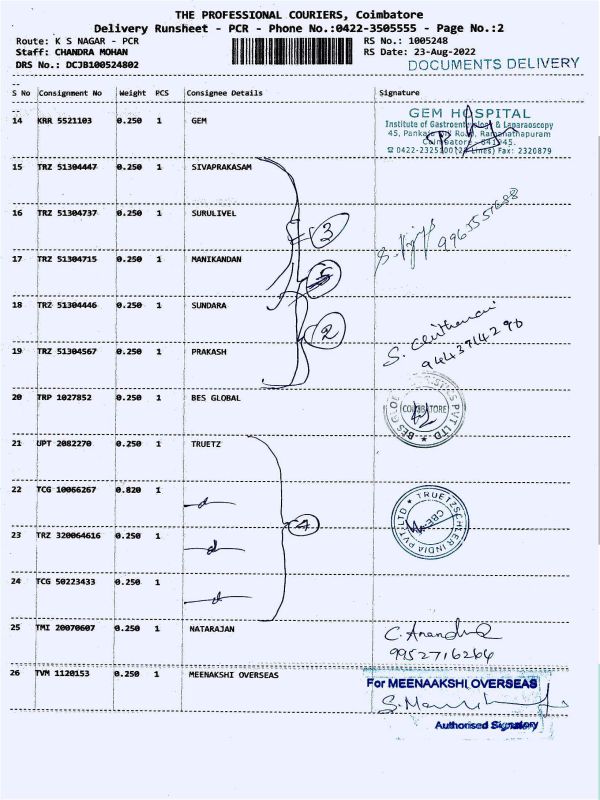 THE PROFESSIONAL COURIERS, Coimbatore
Delivery Runsheet - PCR - Phone No.:0422-3505555 - Page No.:2
Route: K S NAGAR - PCR RS No.: 1005248
Staff: CHANDRA MOHAN RS Date: 23-Aug-2022
DRS No.: DCJB100524802 DOCUMENTS DELIVERY
S No Consignment No Weight PCS Consignee Details Signature
14 KRR 5521103 0.250 1 GEM
GEM HOSPITAL
Institute of Gastroenterology & Laparaoscopy
45, Pankaja Road, Ramanathapuram
Coimbatore - 641045.
0422-2325100 Lines) Fax: 2320879
15 TRZ 51304447 0.250 1 SIVAPRAKASAM
16 TRZ 51304737 0.250 1 SURULIVEL
3
9963557688
17 TRZ 51304715 0.250 1 MANIKANDAN
5
18 TRZ 51304446 0.250 1 SUNDARA
2
S.
9443714290
19 TRZ 51304567 0.250 1 PRAKASH
20 TRP 1027852 0.250 1 BES GLOBAL
COIMBATORE
21 UPT 2082270 0.250 1 TRUETZ
22 TCG 10066267 0.820 1
4
TRUETZSCHLER INDIA PVT LTD
CBE
23 TRZ 320064616 0.250 1
24 TCG 50223433 0.250 1
25 TMI 20070607 0.250 1 NATARAJAN
C. Anand
9952716264
26 TVM 1120153 0.250 1 MEENAKSHI OVERSEAS
For MEENAAKSHI OVERSEAS
Authorised Signatory